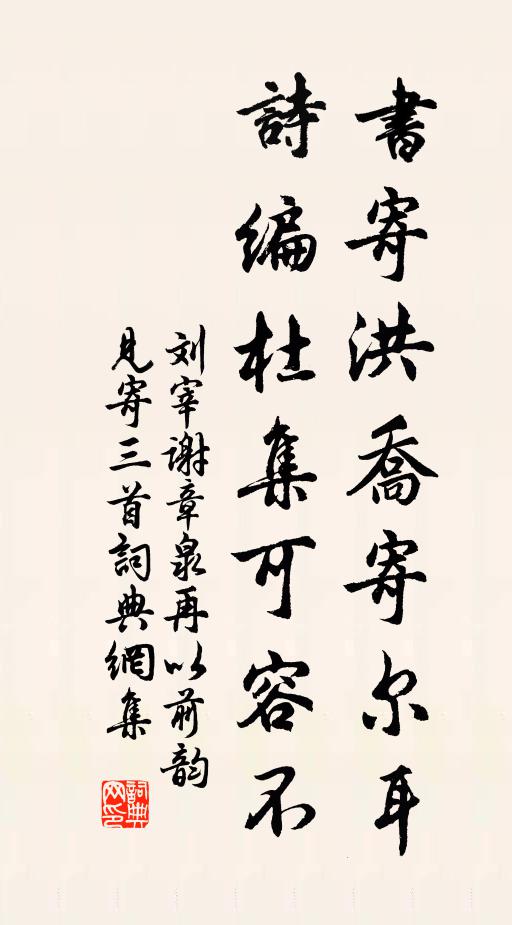 書寄洪喬寄尔耳
詩编杜集可容不
刘宰谢章泉再以前韵
見寄三首詞典網集
詞典网印